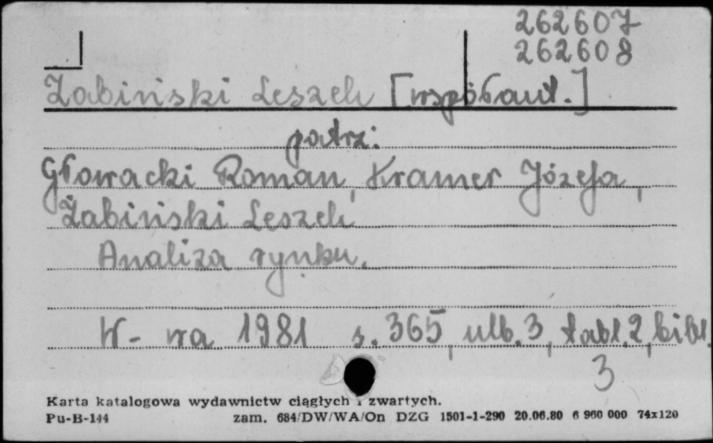 262607
262608
Żabiński Leszek [współaut.]
patrz:
Głowacki Roman, Kramer Józefa,
Żabiński Leszek
Analiza rynku.
W-wa 1981 s. 365, ulb. 3, tabl. 2, bibl.
3
Karta katalogowa wydawnictw ciągłych i zwartych.
Pu-B-144 zam. 684/DW/WA/On DZG 1501-1-290 20.06.80 6 960 000 74x120